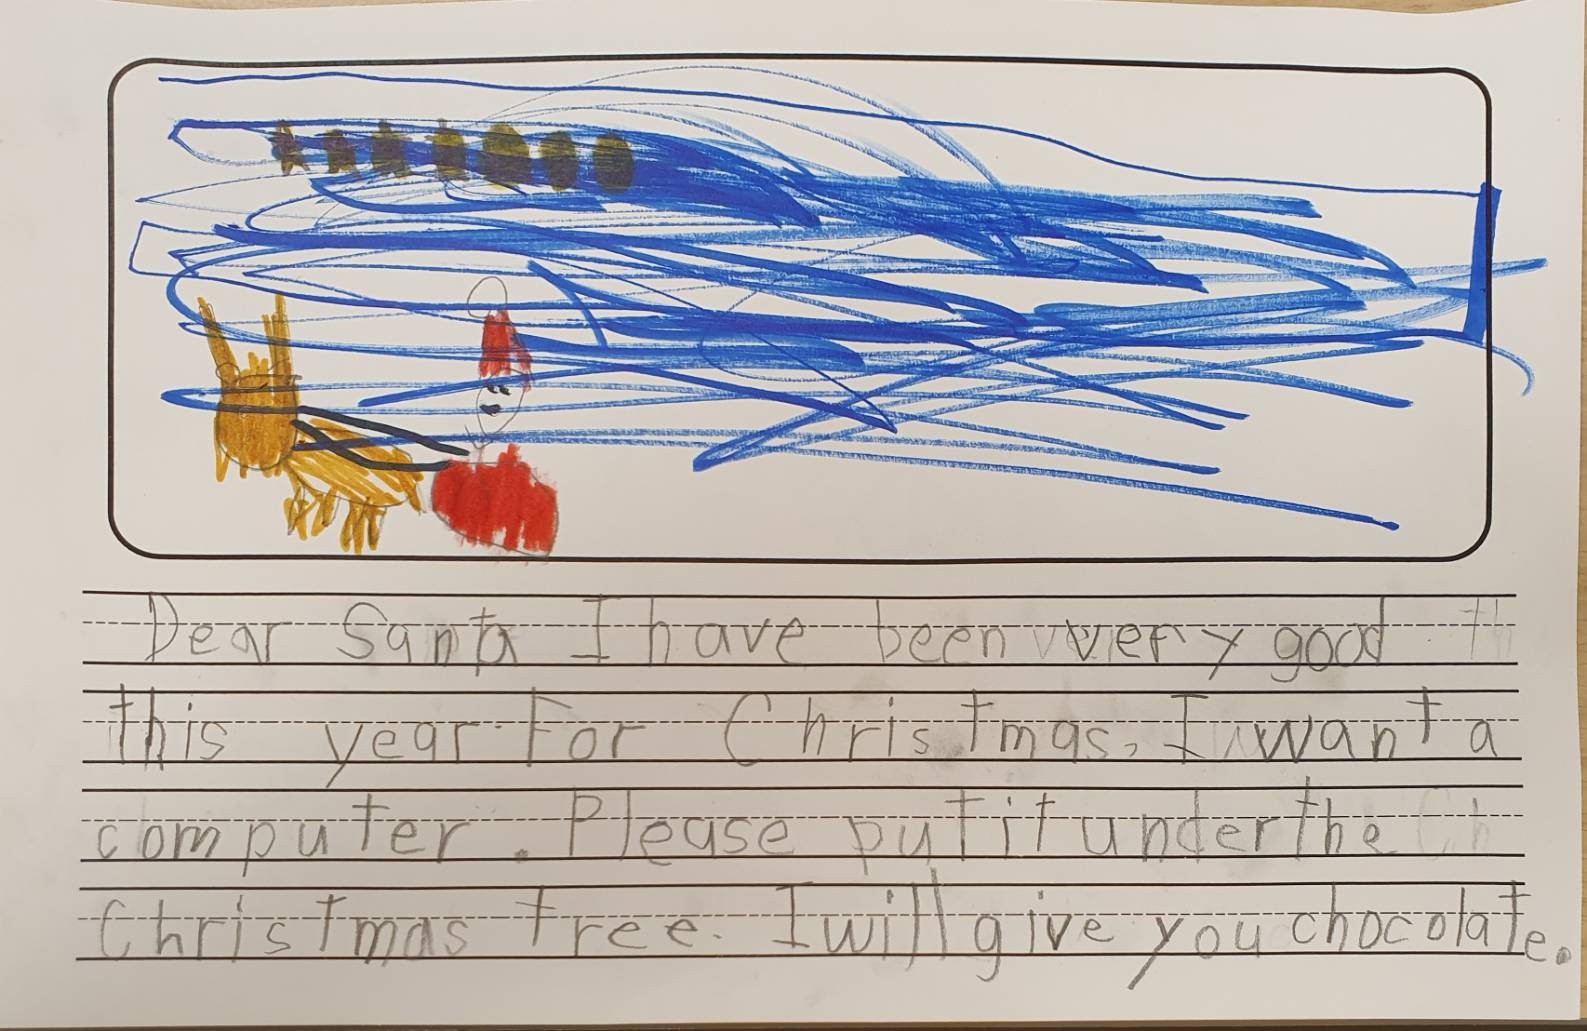 Dear Santa I have been very good
this year. For Christmas, I want a
computer. Please put it under the
Christmas tree. I will give you chocolate.